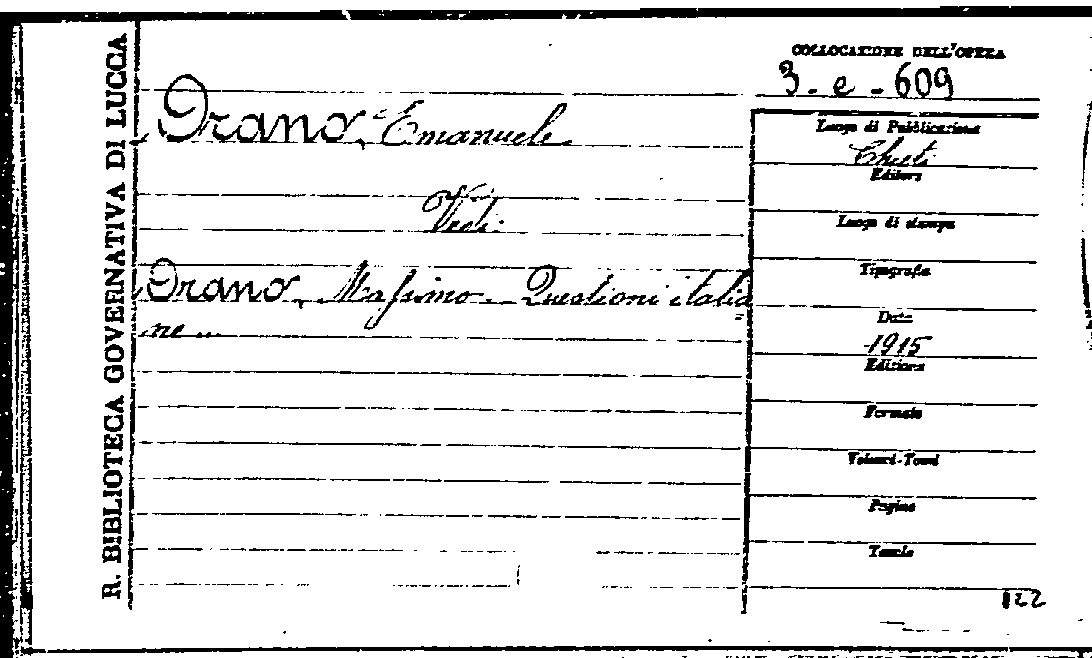 R. BIBLIOTECA GOVERNATIVA DI LUCCA
COLLOCAZIONE DELL'OPERA
3. e - 609
Orano, Emanuele.
Vedi:
Orano, Massimo. Questioni italia
ne...
Luogo di Pubblicazione
Chieti
Editore
Luogo di stampa
Tipografia
Data
1915
Edizione
Formato
Volumi-Tomi
Pagine
Tavole
122